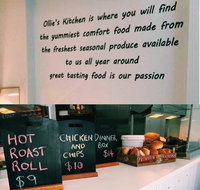 Ollie's Kitchen is where you will find
the yummiest comfort food made from
the freshest seasonal produce available
to us all year around
great tasting food is our passion
HOT
ROAST
ROLL
$9
CHICKEN
AND
CHIPS
$10
DINNER
BOX
$14